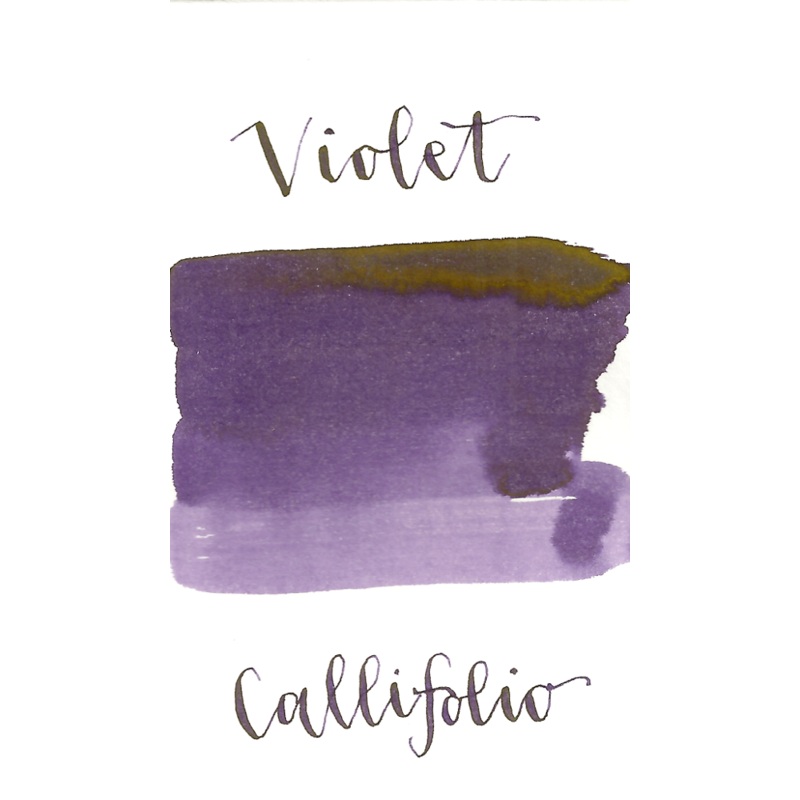 Violet
Callifolio